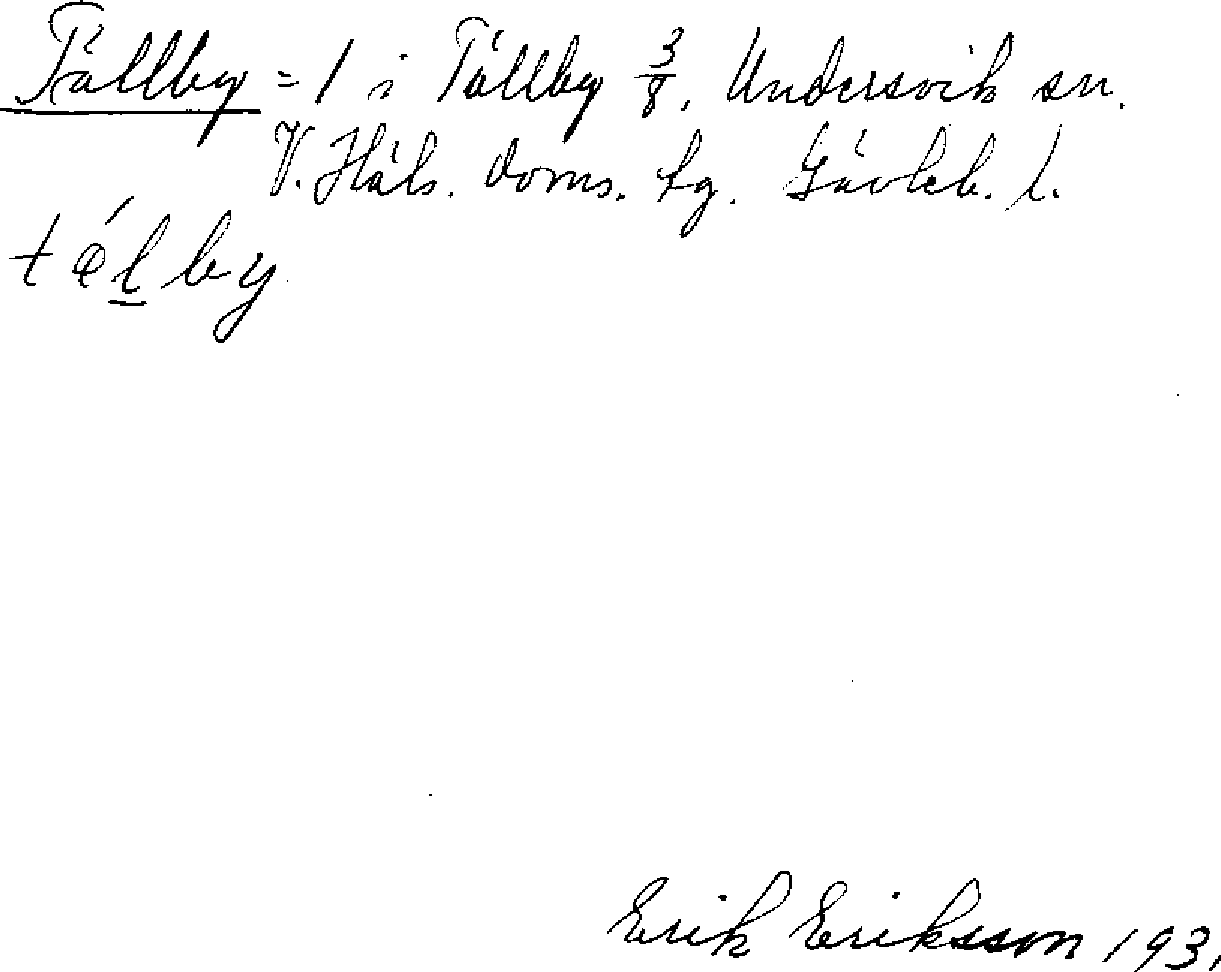 Tällby = 1 i Tällby 3/8, Undersvik sn.
V. Häls. doms. fg. Gävleb. l.
tǽlby
Erik Eriksson 193